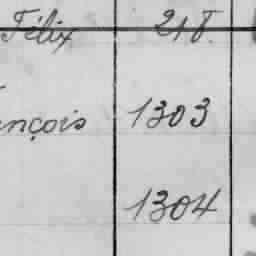 Félix 218.
ançois 1303
1304